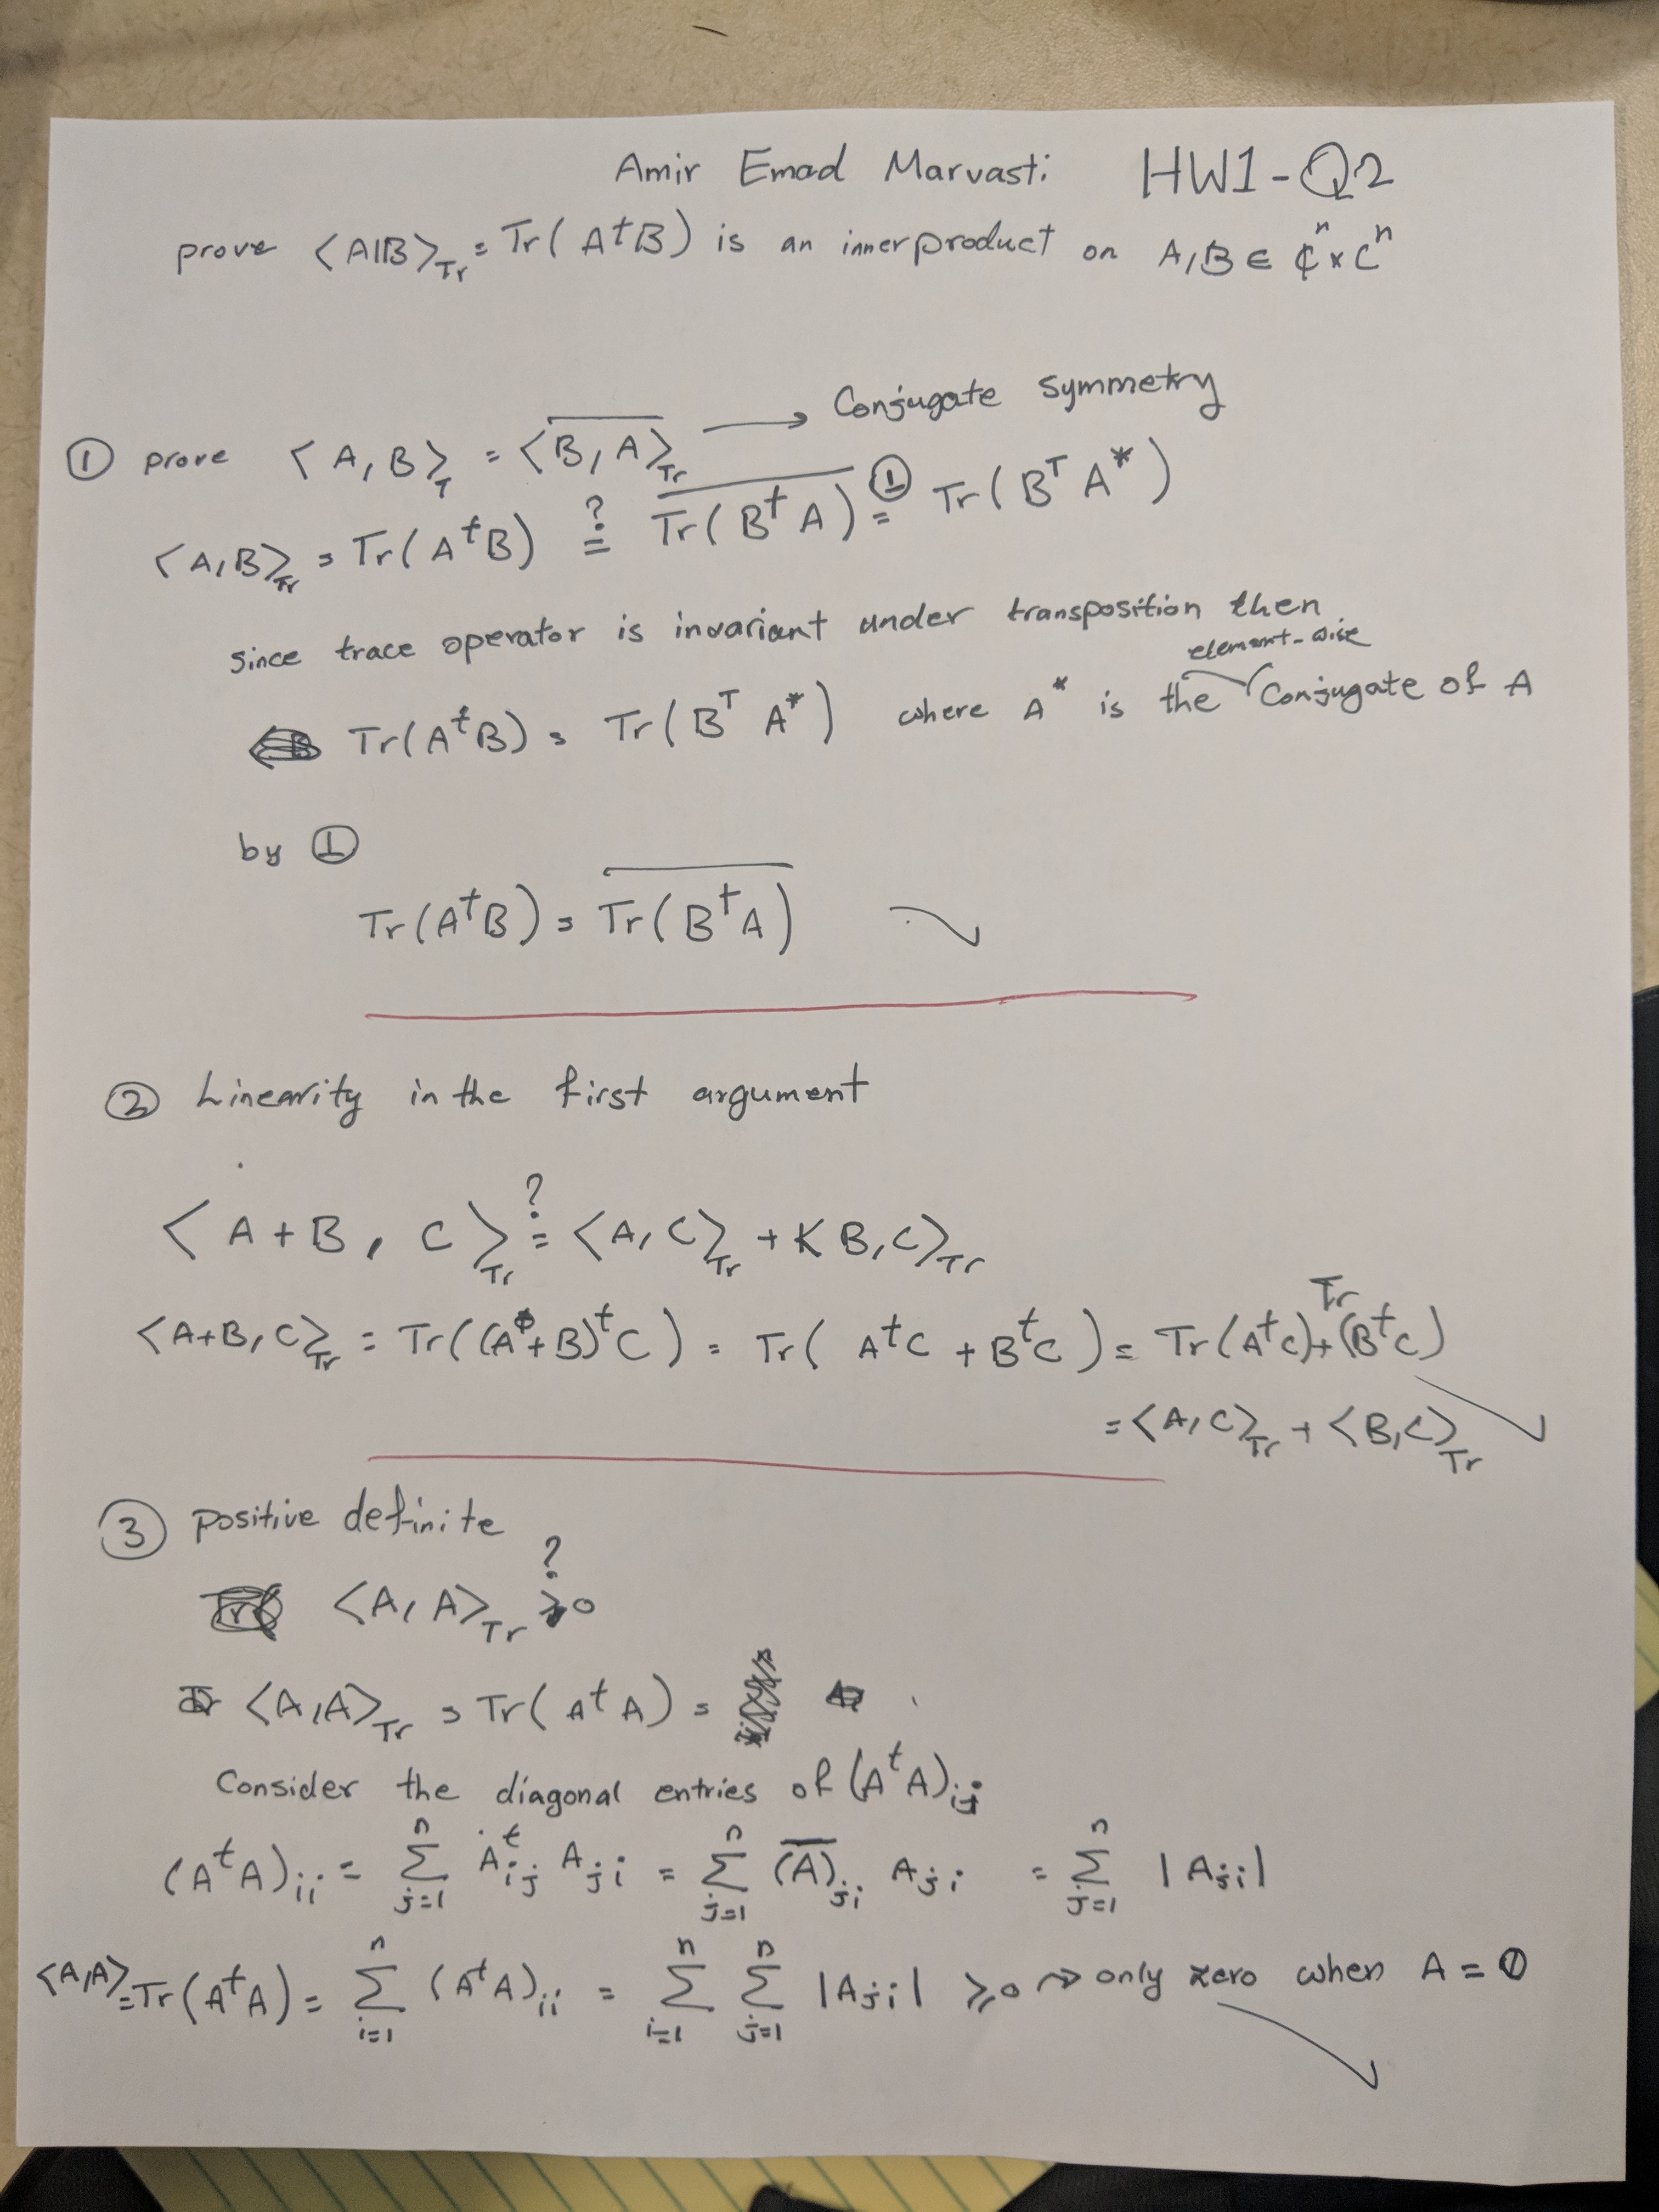 Amir Emad Marvasti HW1-Q2
prove <A|B>_Tr = Tr(A†B) is an inner product on A,B ∈ ℂ^n × C^n
① prove <A,B>_T = \overline{<B,A>}_Tr → Conjugate symmetry
<A,B>_Tr = Tr(A†B) ?= \overline{Tr(B†A)} ①= Tr(B^T A*)
since trace operator is invariant under transposition then
Tr(A†B) = Tr(B^T A*) where A* is the element-wise Conjugate of A
by ①
Tr(A†B) = \overline{Tr(B†A)}
② Linearity in the first argument
<A+B, C>_Tr ?= <A,C>_Tr + <B,C>_Tr
<A+B,C>_Tr = Tr((A+B)†C) = Tr(A†C + B†C) = Tr(A†C) + Tr(B†C)
= <A,C>_Tr + <B,C>_Tr
③ positive definite
<A,A>_Tr ?⩾ 0
<A,A>_Tr = Tr(A†A) =
Consider the diagonal entries of (A†A)_ij
(A†A)_ii = Σ_{j=1}^n A†_ij A_ji = Σ_{j=1}^n \overline{(A)}_ji A_ji = Σ_{j=1}^n |A_ji|
<A,A> = Tr(A†A) = Σ_{i=1}^n (A†A)_ii = Σ_{i=1}^n Σ_{j=1}^n |A_ji| ⩾ 0 ⇝ only zero when A = 0